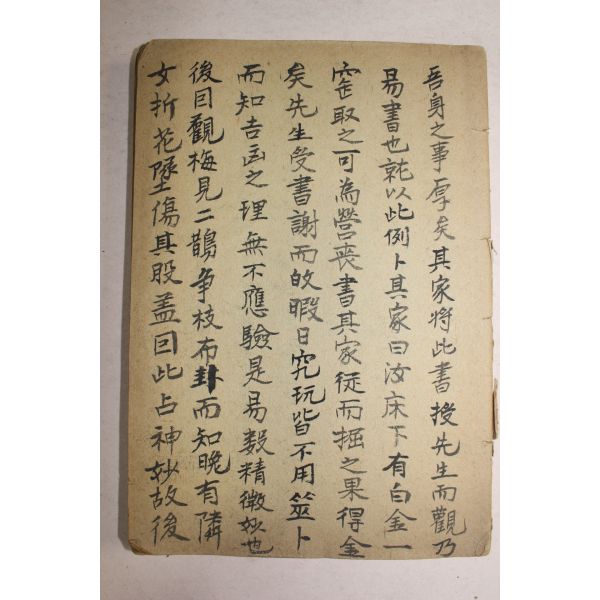 吾身之事厚矣其家将此書授先生而觀乃
易書也就以此例卜其家曰汝床下有白金一
窖取之可為營喪書其家從而掘之果得金
矣先生受書謝而故暇日究玩皆不用筮卜
而知吉凶之理無不應驗是易数精微妙也
後因觀梅見二鵲争枝布卦而知晚有隣
女折花墜傷其股盖因此占神妙故後